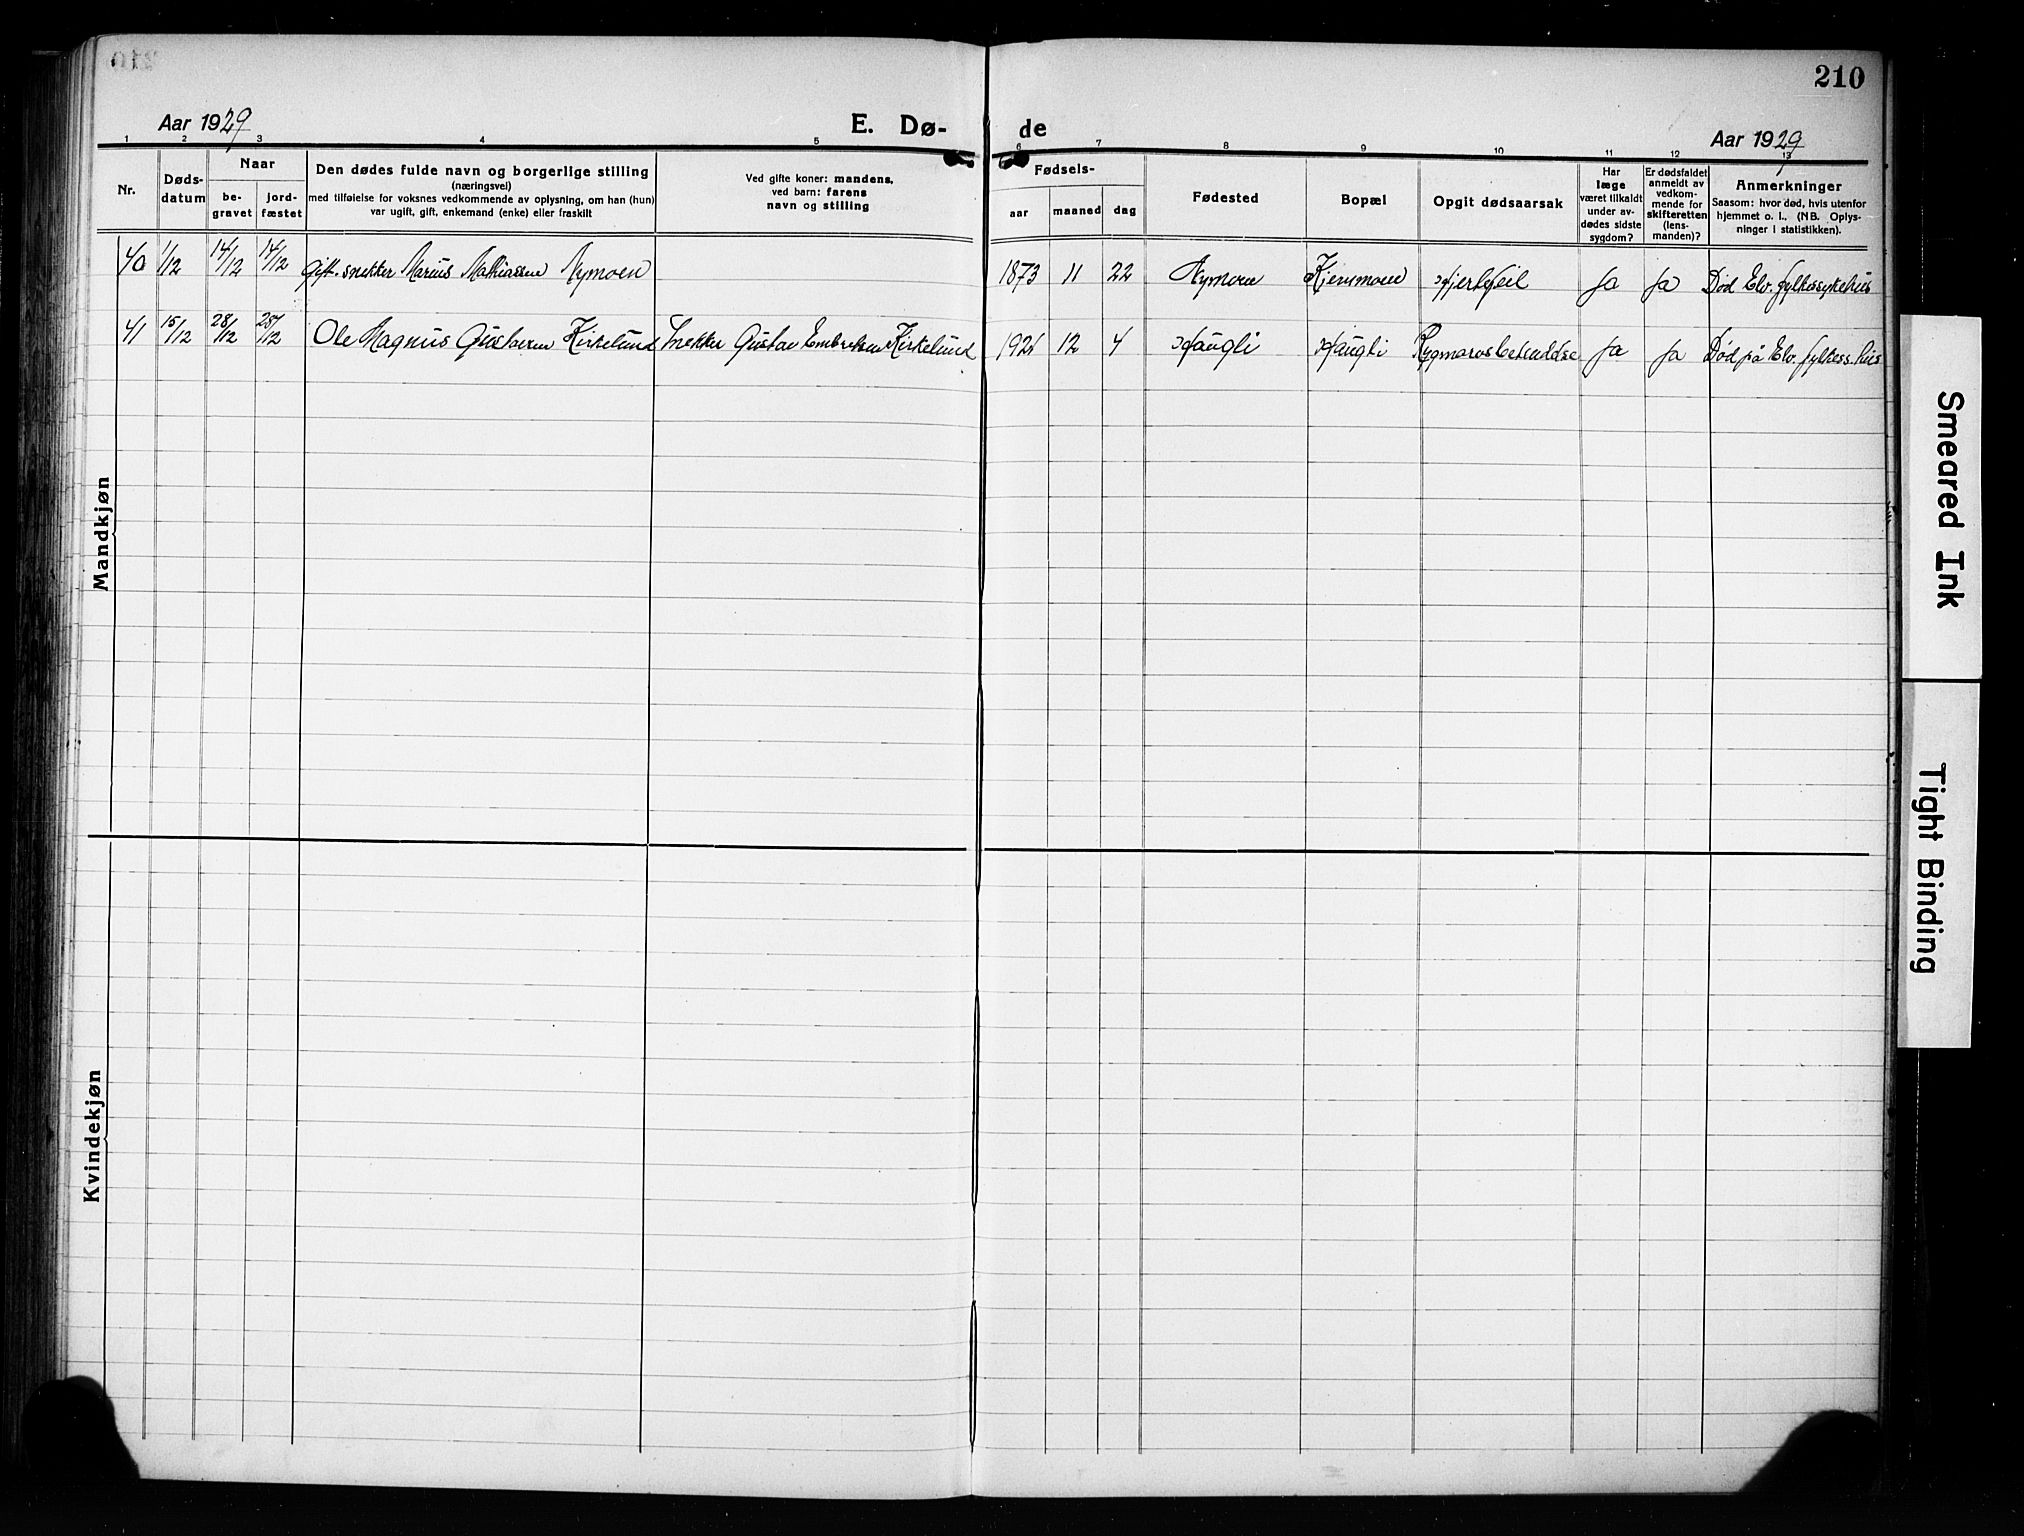 210
Aar 1929
E. Dø-
de
Aar 1929
1 2 3 4 5 6 7 8 9 10 11 12 13
Nr.
Døds-
datum
Naar
be-
gravet
jord-
fæstet
Den dødes fulde navn og borgerlige stilling
(næringsvei)
med tilføielse for voksnes vedkommende av oplysning, om han (hun)
var ugift, gift, enkemand (enke) eller fraskilt
Ved gifte koner: mandens,
ved barn: farens
navn og stilling
Fødsels-
aar
maaned
dag
Fødested
Bopæl
Opgit dødsaarsak
Har
læge
været tilkaldt
under av-
dødes sidste
sygdom?
Er dødsfaldet
anmeldt av
vedkom-
mende for
skifteretten
(lens-
manden)?
Anmerkninger
Saasom: hvor død, hvis utenfor
hjemmet o. l. (NB. Oplys-
ninger i statistikken).
40 1/12 14/12 14/12 Gift. snekker Marius Mathiassen Nymoen 1873 11 22 Nymoen Kjensmoen Hjertefeil Ja Ja Død Elv. fylkessykehus
41 15/12 28/12 28/12 Ole Magnus Gustavsen Kirkelund Snekker Gustav Embretsen Kirkelund 1921 12 4 Haugli Haugli Rygmarvsbetendelse Ja Ja Død på Elv. fylkess.hus
Mandkjøn
Kvindekjøn
Smeared Ink
Tight Binding